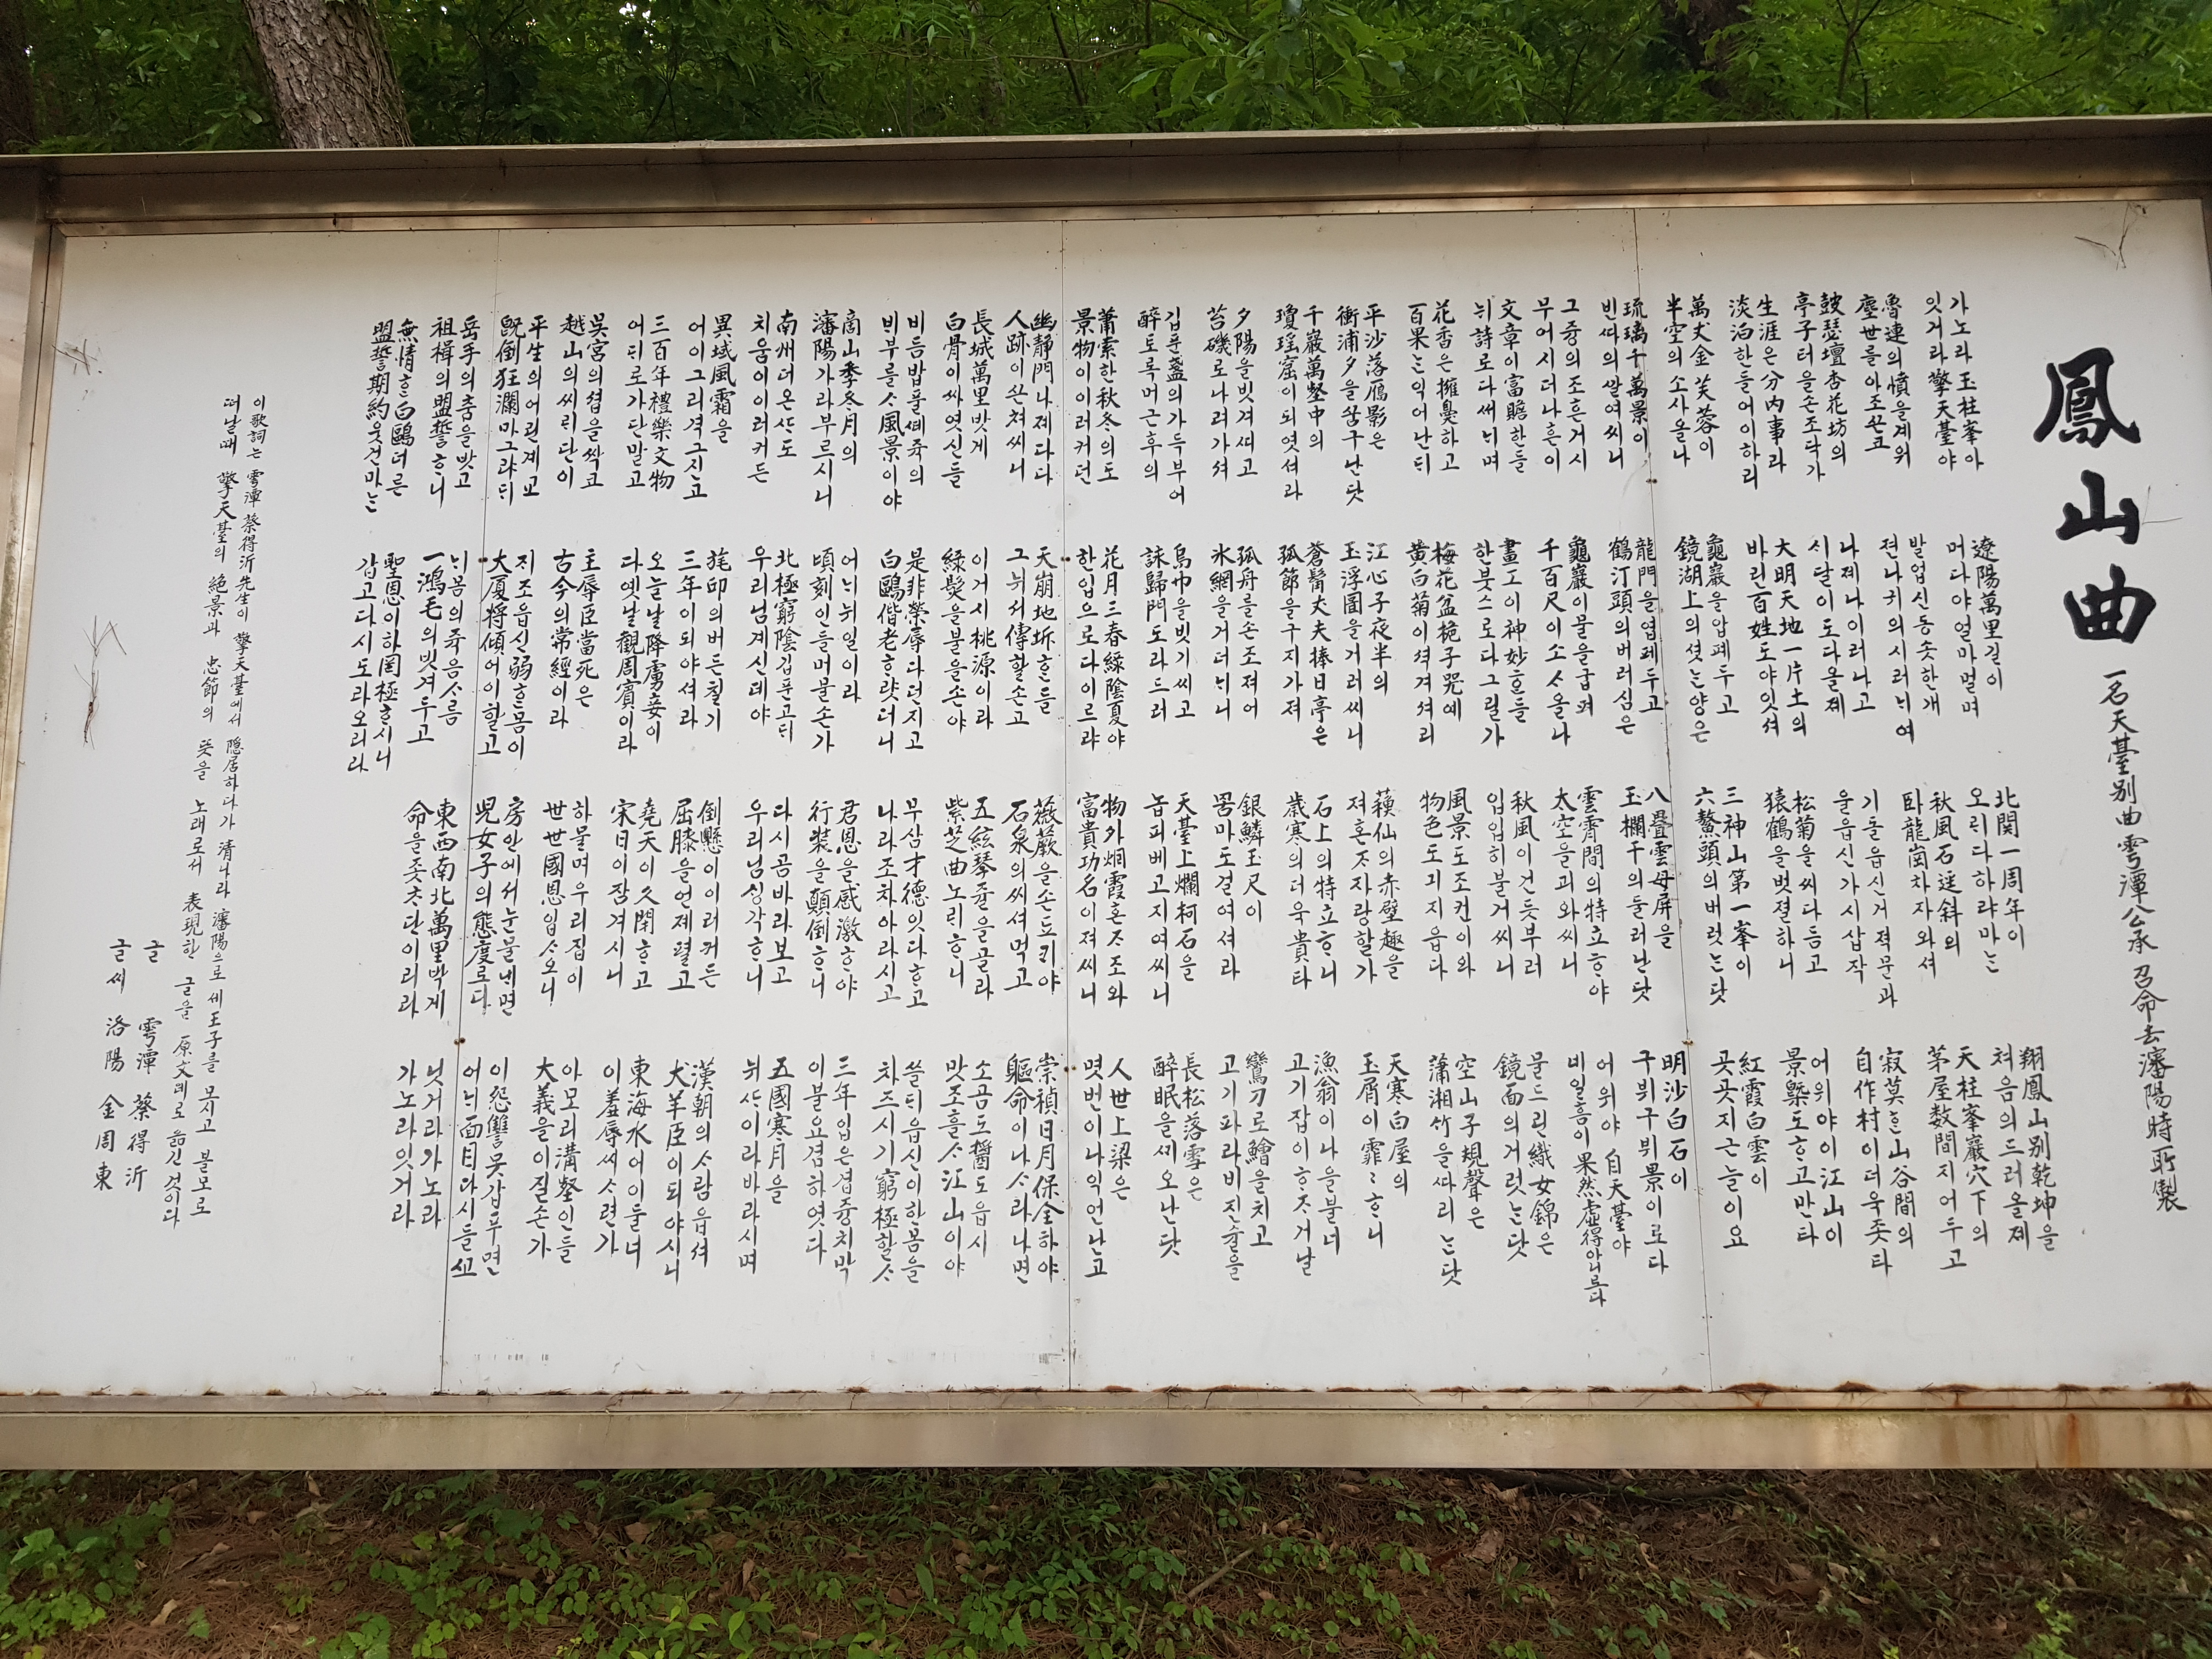 鳳山曲
一名天臺別曲雩潭公承召命去瀋陽時所製
가노라玉柱峯아
잇거라擎天臺야
遼陽萬里길이
머다야얼마멀며
北関一周年이
오릭다하랴마는
翔鳳山別乾坤을
쳐음의드러올졔
魯連의憤을계워
塵世를아조끈코
발업신동솟한개
젼나귀의시러늬여
秋風石逕斜의
臥龍崗차자와셔
天柱峯巖穴下의
茅屋数間지어두고
鼓瑟壇杏花坊의
亭子터을손조닥가
나졔나이러나고
시달이도다올졔
기동읍신거젹문과
울읍신가시삽작
寂莫ᄒᆞᆫ山谷間의
自作村이더욱죳타
生涯은分內事라
淡泊한들어이하리
大明天地一片土의
바린百姓도야잇셔
松菊을씨다듬고
猿鶴을벗졀하니
어위야이江山이
景槩도ᄒᆞ고만타
萬丈金芙蓉이
半空의소사올나
龜巖을압폐두고
鏡湖上의셧는양은
三神山第一峯이
六鰲頭의버럿는닷
紅霞白雲이
곳곳지근늘이요
琉璃千萬景이
빈따의쌀여씨니
龍門을엽폐두고
鶴汀頭의버러심은
八疊雲母屏을
玉欄干의둘러난닷
明沙白石이
구뷔구뷔景이로다
그즁의조흔거시
부어시더나흔이
龜巖이물을굽펴
千百尺이소ᄉᆞ올나
雲霄間의特立ᄒᆞ야
太空을괴와씨니
어위야自天臺야
비일흠이果然虛得안니로다
文章이富贍한들
뉘詩로다써늬며
畫工이神妙ᄒᆞᆫ들
한붓스로다그릴가
秋風이건듯부러
입입히불거씨니
물드린織女錦은
鏡面의거럿는닷
花香은擁鼻하고
百果는익어난듸
梅花盆梔子况예
黃白菊이셔겨셔리
風景도조컨이와
物色도긔지읍다
空山子規聲은
蕭湘竹을따리는닷
平沙落鴈影은
衡浦夕을꿈구난닷
江心子夜半의
玉浮圖을거러씨니
蘓仙의赤壁趣을
져혼ᄌᆞ자랑할가
天寒白屋의
玉屑이霏〻ᄒᆞ니
千巖萬壑中의
瓊瑤窟이되엿셔라
蒼髯丈夫捧日亭은
孤節을구지가져
石上의特立ᄒᆞ니
歲寒의더욱貴타
漁翁이나을불너
고기잡이ᄒᆞᄌᆞ거날
夕陽을빗겨띄고
苔磯로나려가셔
孤舟를손조져어
氷網을거더늬니
銀鱗玉尺이
꿈마도걸여셔라
鸞刀로鱠을치고
고기파라비진슐을
깁푼盞의가득부어
醉토록머근후의
烏巾을빗기씨고
詠歸門도라드러
天臺上爛柯石을
놉피베고지여씨니
長松落雪은
醉眠을세오난닷
蕭索한秋冬의도
景物이이러커던
花月三春綠陰夏야
한입으로다이르랴
物外烟霞혼ᄌᆞ조와
富貴功名이져씨니
人世上梁은
몃번이나익언난고
幽靜門나졔다다
人跡이끈쳐씨니
天崩地坼ᄒᆞᆫ들
그뉘서傳할손고
薇蕨을손됴키야
石泉의씨셔먹고
崇禎日月保全하야
軀命이나ᄉᆞ라나면
長城萬里밧게
白骨이싸엿신들
이거시桃源이라
綠髮을불을손야
五絃琴쥴을골라
紫芝曲노릐ᄒᆞ니
소곰도醬도읍시
맛조흘ᄉᆞ江山이야
비듬밥풀쎄쥭의
븨부를ᄉᆞ風景이야
是非榮辱다던지고
白鷗偕老ᄒᆞ럇더니
무삼才德잇다ᄒᆞ고
나라조차아라시고
쓸듸읍신이한몸을
차즈시기窮極할ᄉᆞ
商山季冬月의
瀋陽가라부르시니
어늬뉘일이라
頃刻인들머물손가
君恩을感激ᄒᆞ야
行裝을顛倒ᄒᆞ니
三年입은겹즁치막
이불요겸하엿다
南州더온ᄯᅡ도
치움이이러커든
北極窮陰깁푼고듸
우리님계신데야
다시곰바라보고
우리님싱각ᄒᆞ니
五國寒月을
뉘ᄯᅡ이라바라시며
異域風霜을
어이그리격그신고
旄邱의버든칠기
三年이되야셔라
倒懸이이러커든
屈膝을언제펼고
漢朝의ᄉᆞ람읍셔
犬羊臣이되야시니
三百年禮樂文物
어듸로가단말고
오늘날降虜妾이
다옛날觀周賓이라
堯天이久閉ᄒᆞ고
宋日이잠겨시니
東海水어이둘너
이羞辱씨ᄉᆞ련가
吳宮의셥을싹코
越山의씨릭단이
主辱臣當死은
古今의常經이라
하물며우리집이
世世國恩입ᄉᆞ오니
아모리溝壑인들
大義을이질손가
平生의어린계교
旣倒狂瀾마그랴듸
지조읍신弱ᄒᆞᆫ몸이
大厦將傾어이할고
房안에셔눈물낸면
兒女子의態度로다
이怨讐못갑푸면
어늬面目다시들고
岳手의춤을밧고
祖楫의盟誓ᄒᆞ니
늬몸의쥭음ᄉᆞ름
一鴻毛의빗겨두고
東西南北萬里박게
命을좃ᄎᆞ단이리라
닛거라가노라
가노라잇거라
無情ᄒᆞᆫ白鷗더른
盟誓期約웃건마는
聖恩이하罔極ᄒᆞ시니
갑고다시도라오리라
이歌詞는 雩潭 蔡得沂先生이 擎天臺에서 隱居하다가 淸나라 瀋陽으로 세王子를 모시고 볼모로
떠날때 擎天臺의 絶景과 忠節의 뜻을 노래로서 表現한 글을 原文대로 옮긴것이다
글 雩潭 蔡得沂
글씨 洛陽 金周東